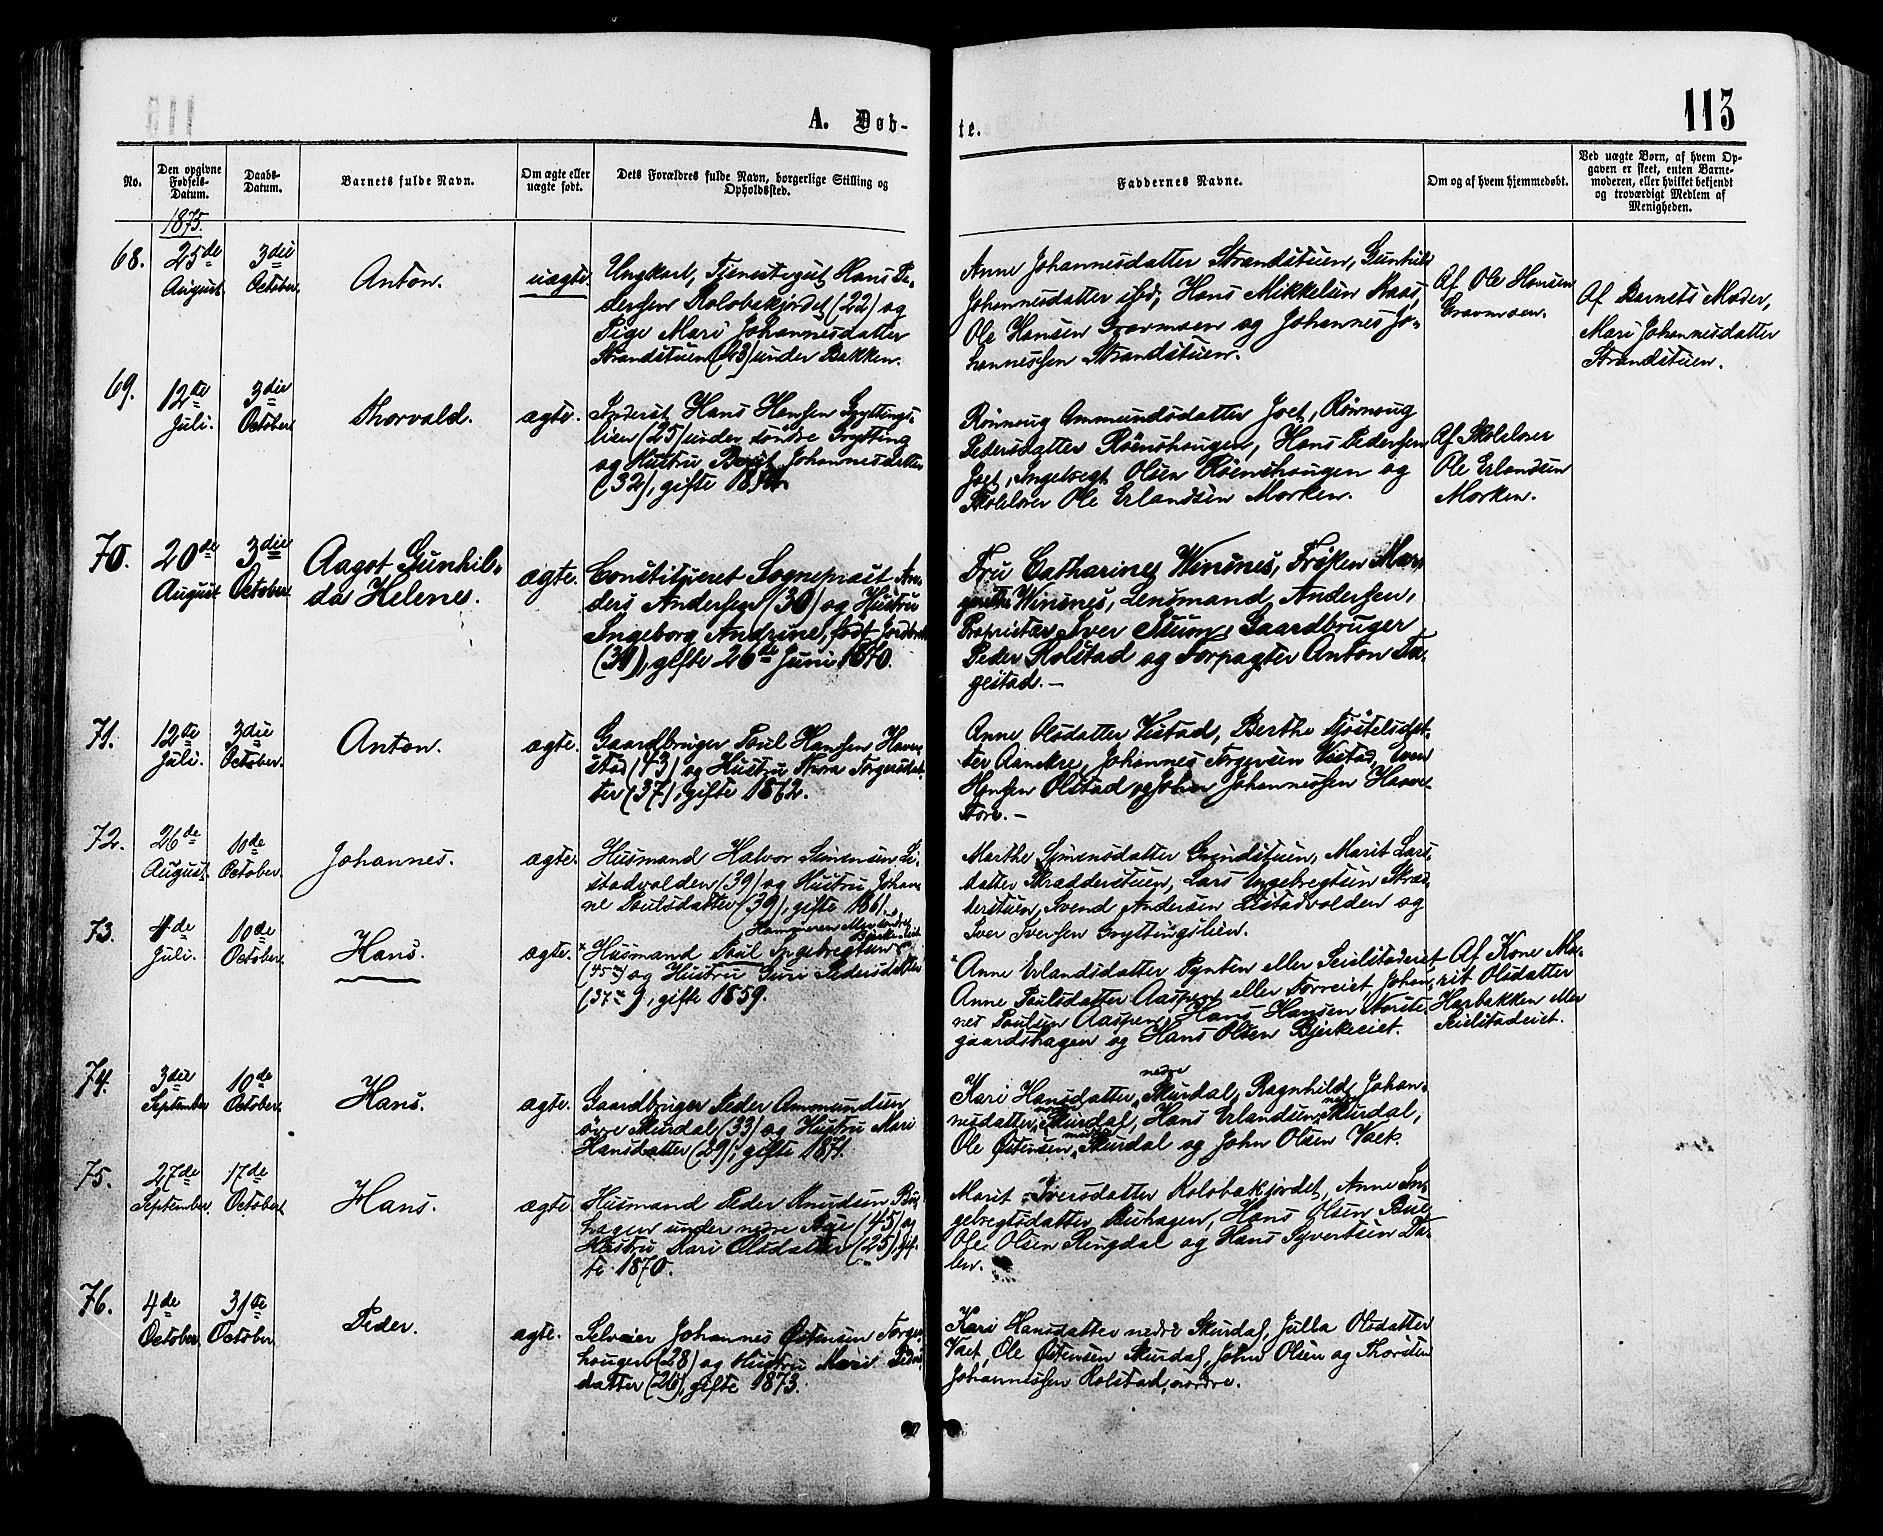 113
A. Døb-
te.
No.
Den opgivne Fødsels-Datum.
Daabs-Datum.
Barnets fulde Navn.
Om ægte eller uægte født.
Dets Forældres fulde Navn, borgerlige Stilling og Opholdssted.
Faddernes Navne.
Om og af hvem hjemmedøbt.
Ved uægte Børn, af hvem Opgaven er skeet, enten Barnemoderen, eller hvilket bekjendt og troværdigt Medlem af Menigheden.
1875.
68.
25de August.
3die October.
Anton.
uægte.
Ungkarl, Tjenestegut Hans Pe-
dersen Kolobakjordet (22) og
Pige Mari Johannesdatter
Strandstuen (23) under Bakken.
Anne Johannesdatter Strandstuen, Gunhild
Johannesdatter ibd, Hans Mikkelsen Raas,
Ole Hansen Gravmoen og Johannes Jo-
hannessen Strandstuen.
Af Ole Hansen
Gravmoen.
Af Barnets Moder,
Mari Johannesdatter
Strandstuen.
69.
12te Juli.
3die October.
Thorvald.
ægte.
Inderst Hans Hansen Grytting-
lien (25) under søndre Grytting
og Hustru Berit Johannesdatter
(32), gifte
Rønnoug Ammundsdatter Joet, Rønnoug
Pedersdatter Røenshaugen, Hans Pedersen
Joet, Ingebregt Olsen Røenshaugen og
Skolelærer Ole Erlandsen Morken.
Af Skolelærer
Ole Erlandsen
Morken.
70.
20de August
3die October.
Aagot Gunhil-
da Helene.
ægte.
Constitueret Sogneprest An-
ders Andersen (30) og Hustru
Ingeborg Andrine, født
gifte 26de Juni 1870.
Fru Catharine Winsnes, Frøken Mar-
grethe Winsnes, Lensmand Andersen,
Proprietær Iver Stum, Gaardbruger
Peder Kolstad og Forpagter Anton Ta-
gestad. —
71.
12te Juli.
3die October.
Anton.
ægte.
Gaardbruger Poul Hansen Haver-
stad (43) og Hustru Thora Torgersdat-
ter (37), gifte 1862.
Anne Olsdatter Vistad, Berthe Kjøstelsdat-
ter Aanekre, Johannes Torgersen Vistad, Iver
Hansen Olstad og Johan Johannessen Haver-
72.
26de August.
10de October.
Johannes.
ægte.
Husmand Halvor Simensen Li-
stadvolden (39) og Hustru Johan-
ne Poulsdatter (39), gifte 1861.
Marthe Simensdatter Grindstuen, Marit Lars-
datter Skrædderstuen, Lars Engebregtsen Skræd-
derstuen, Svend Andersen Listadvolden og
Iver Iversen Gryttingslien.
73.
4de Juli.
10de October.
Hans.
ægte.
Husmand Poul Ingebregtsen
(45) og Hustru Guri Pedersdatter
(37), gifte 1859.
Anne Erlandsdatter Pynten eller Seielstadeiet,
Anne Poulsdatter Aaspen eller Forreiet, Johan-
nes Poulsen Aaspen, Hans Hansen Nordste-
gaardshagen og Hans Olsen Bjerkeeiet.
Af Kone Ma-
rit Olsdatter
Harbakken eller
Seielstadeiet.
74.
3die September
10de October.
Hans.
ægte.
Gaardbruger Peder Ammundsen
øvre Skurdal (33) og Hustru Mari
Hansdatter (29), gifte 1871.
Kari Hansdatter nedre Skurdal, Ragnhild Johan-
nesdatter nedre Skurdal, Hans Erlandsen nedre Skurdal,
Ole Østensen nedre Skurdal og John Olsen Vaet.
75.
27de September.
17de October.
Hans.
ægte.
Husmand Peder Knudsen Bu-
hagen under nedre Aae (45) og
Hustru Kari Olsdatter (25), gif-
te 1870.
Marit Iversdatter Kolobakjordet, Anne In-
gebregtsdatter Buhagen, Hans Olsen Bue,
Ole Olsen Ringdal og Hans Syvertsen Da-
len.
76.
4de October
31te October.
Peder.
ægte.
Selveier Johannes Østensen Torger-
haugen (28) og Hustru Mari Peders-
datter (26), gifte 1873.
Kari Hansdatter nedre Skurdal, Julla Olsdatter
Vaet, Ole Østensen Skurdal, John Olsen og Thorsten
Johannessen Kolstad, nordre.